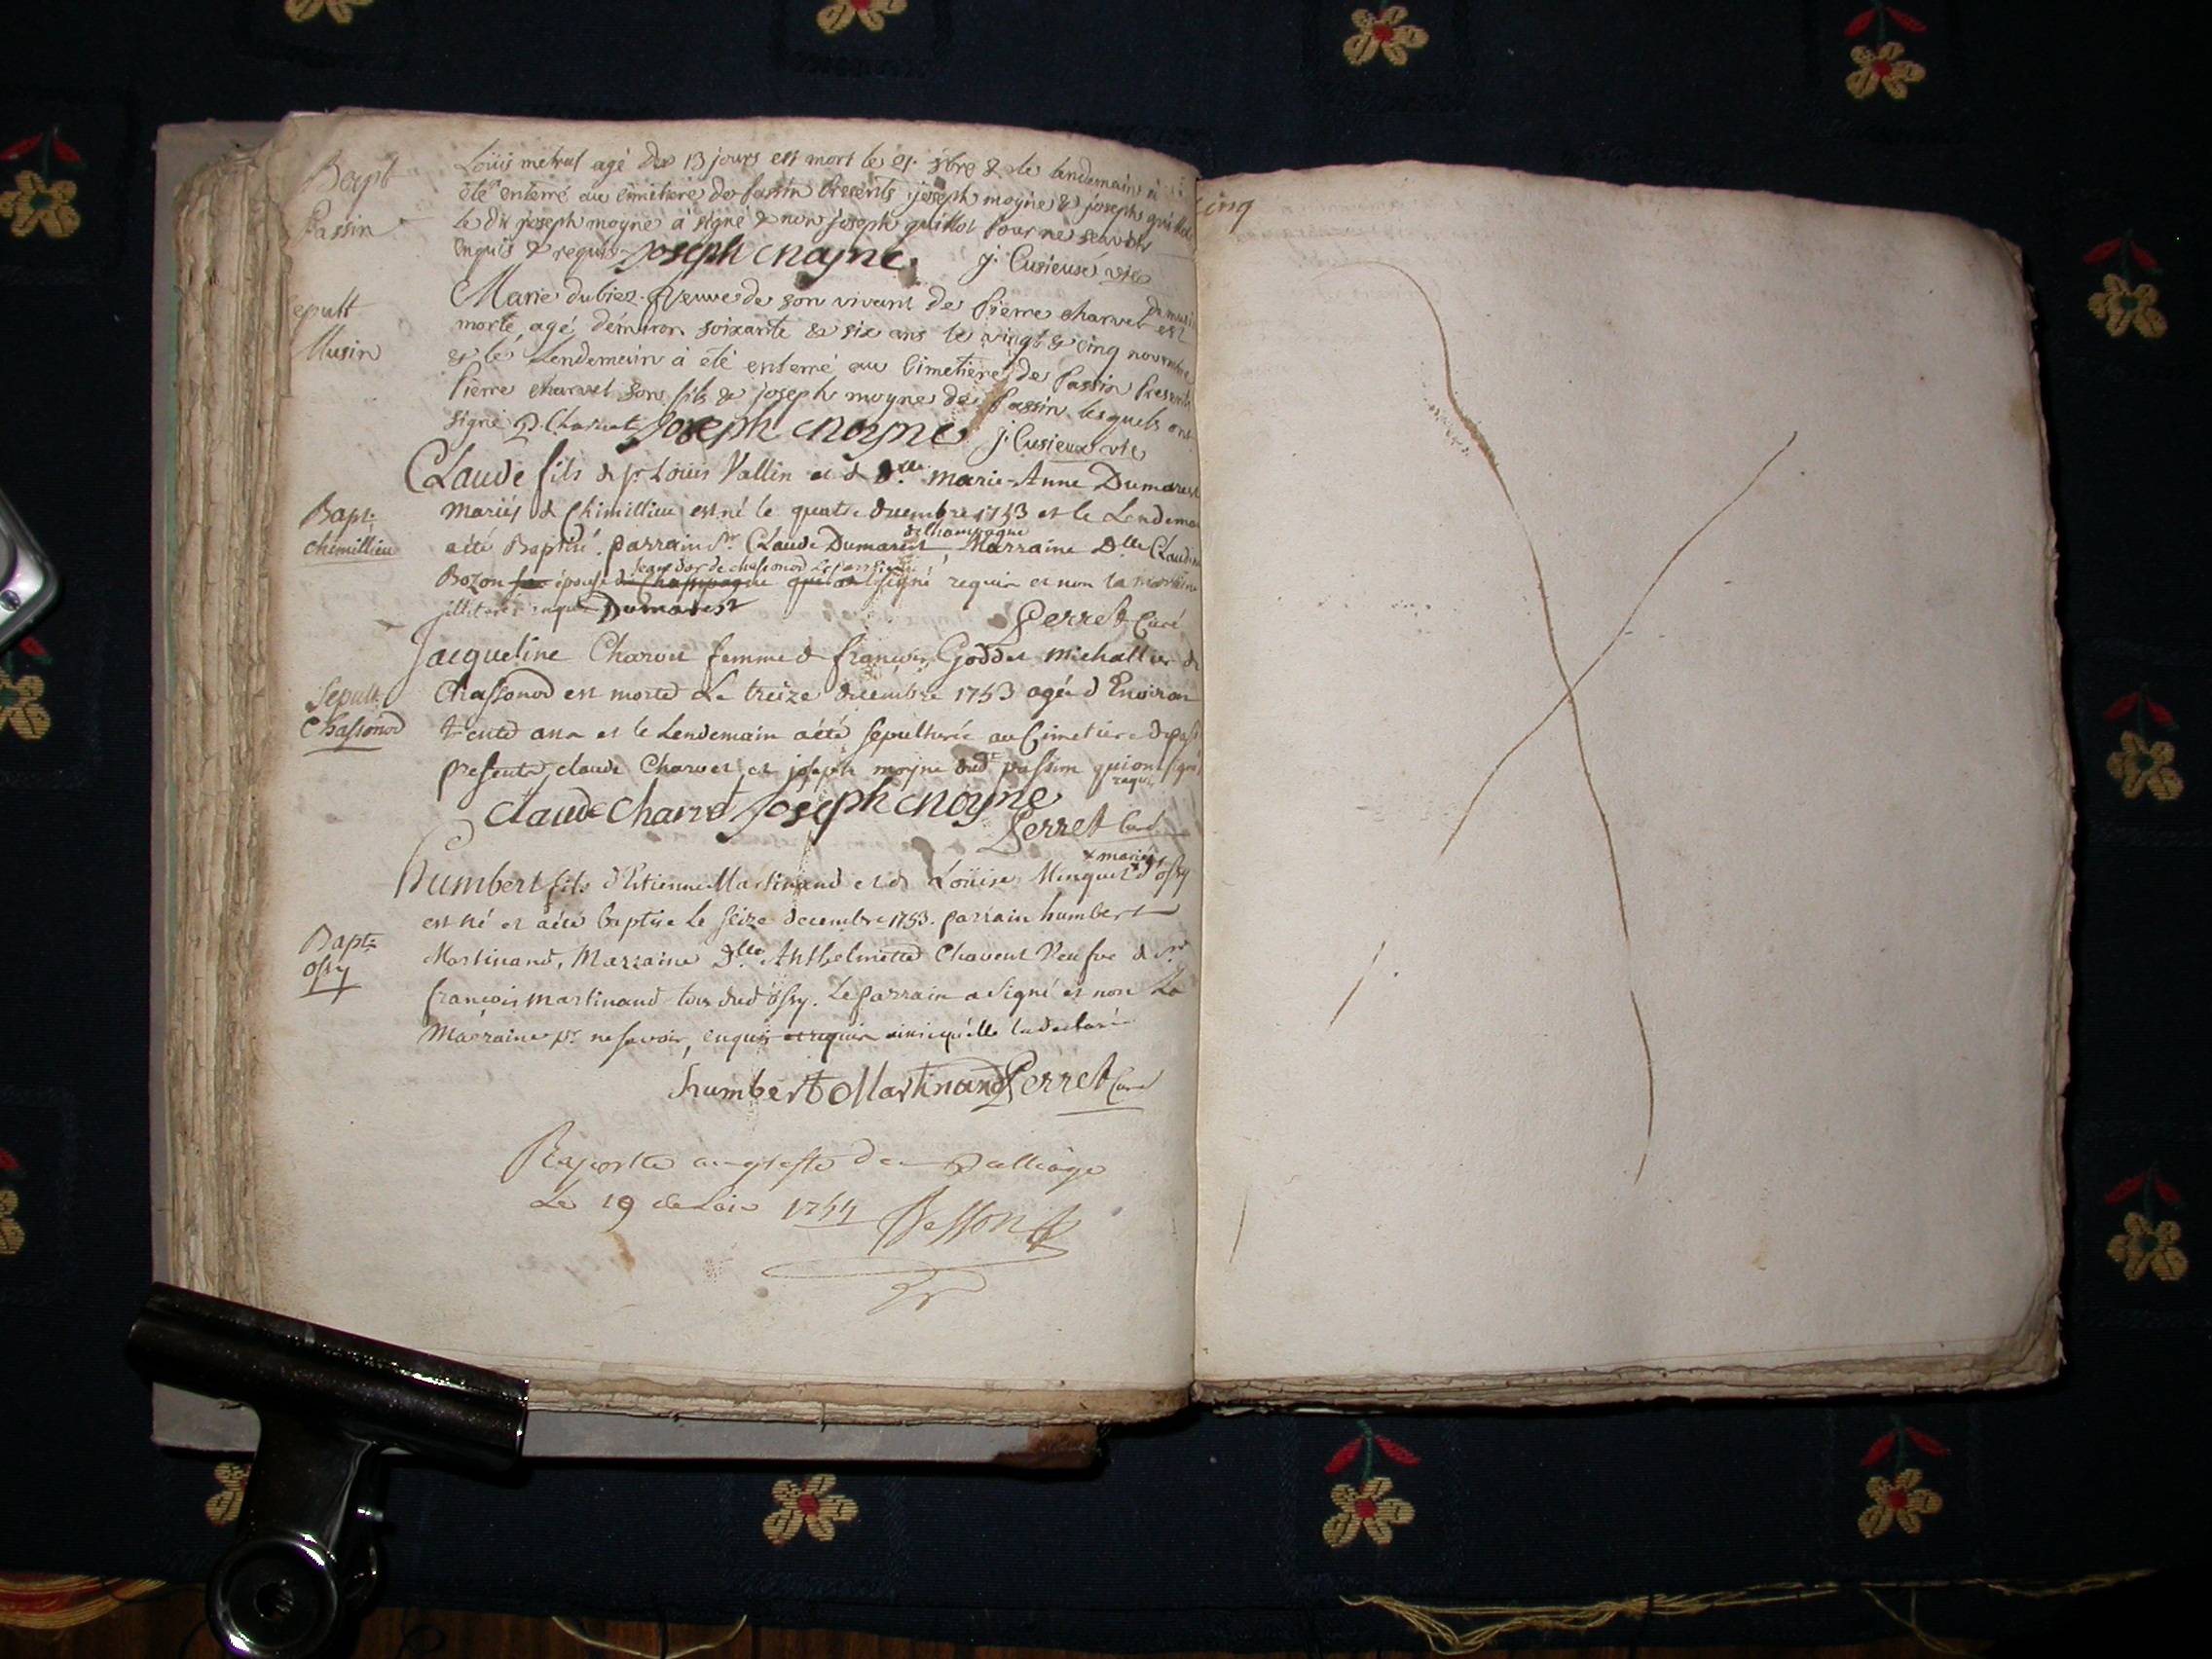 Bapt
Passin
Loüis metral agé de 13 jours est mort le 21. 8bre & le lendemain à
été enterré au cimetiere de Passin Presents joseph moyne & joseph guillot
le dit joseph moyne à signé & non joseph guillot Pour ne scavoir
enquis & requis joseph moyne. j. Cusieux vic
cinq
Sepult
Musin
Marie dubiez veuve de son vivant de Pierre charvet de musin est
morte agé d'environ soixante & six ans le vingt & cinq novembre
et le Lendemain à été enterré au Cimetiere de Passin Presents
Pierre charvet son fils & joseph moyne de Passin lesquels ont
signé P. Charvet joseph moyne j. Cusieux vic
Bapt.
chimillieu
Claude fils de sr Loüis Vallin et de Dlle. marie-Anne Dumarest
mariés de Chimillieu est né le quatre decembre 1753 et le Lendemain
a été Baptisé. parrain Sr. Claude Dumarest de Champagne Marraine Dlle Claudine
Bozon épouse de Champagne qui ont signé requis et non la marraine
illiterée enquise Dumarest
Perret Curé
Sepult.
Chassonod
Jacqueline Charvet femme de françois Goddet michallier de
Chassonod est morte Le treize decembre 1753 agée d'Environ
trente ans et le Lendemain a été sepulturée au Cimetiere de passin
presents claude Charvet et joseph moyne dudt passin qui ont signé
requis
Claude Charvet joseph moyne
Perret Curé
Bapt.
ossy
Humbert fils d'Etienne Martinand et de Loüise Minguet + mariés d'ossy
est né et a été baptisé le seize decembre 1753. parrain humbert
Martinand, Marraine Dlle. Anthelmette Chavent Veufve de Sr.
françois martinand tous dud ossy. Le parrain a Signé et non La
Marraine pr. ne savoir, enquise et requise ainsi qu'elle l'a declaré
humbert Martinand Perret Curé
Raporté au greffe du Balliage
Le 19 1754 Besson